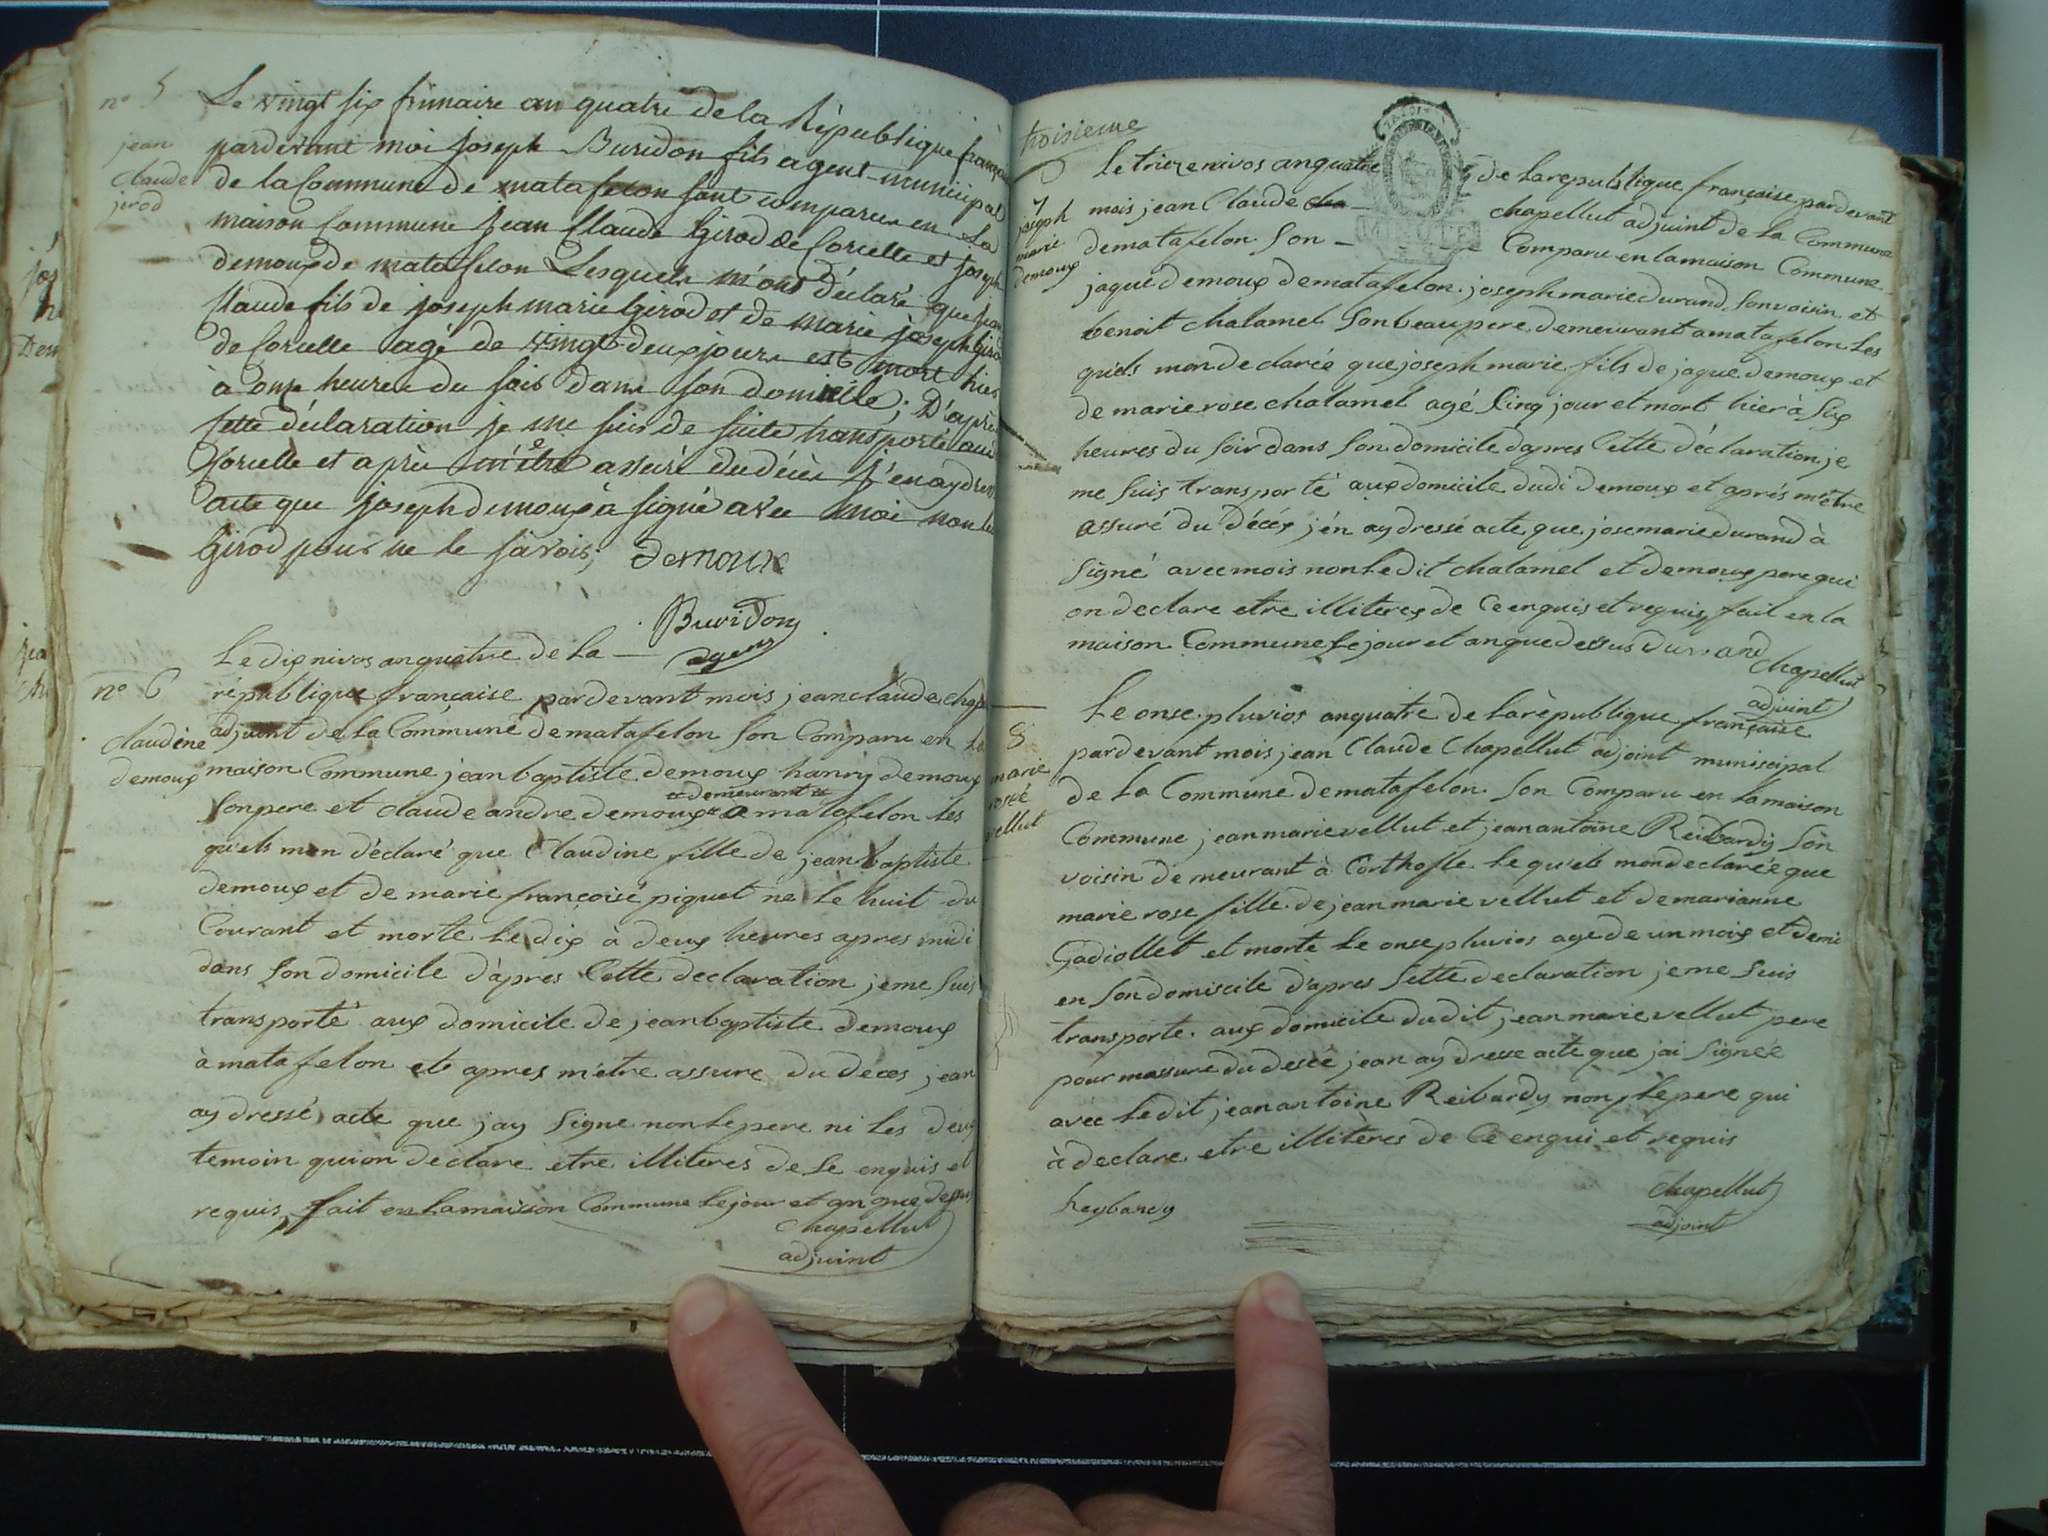 n° 5
jean
Claude
jirod
Le vingt six frimaire an quatre de la République françoise
pardevant moi joseph Buridon fils agent municipal
de la Commune de matafelon sont comparu en La
maison Commune Jean Claude Girod de Corcelle et joseph
demoux de matafelon Lesquels m'ont déclaré que jean
Claude fils de joseph marie Girod et de marie joseph Giro
de Corcelle agé de vingt deux jours est mort hier
à onze heures du soir dans son domicille; D'après
cette déclaration je me suis de suite transporté aud
Corcelle et après m'être assuré du décès j'en ay dressé
acte que joseph demoux à signé avec moi non le
Girod pour ne le savoir; demoux
Buridon
agent
n° 6
Claudine
demoux
Le dix nivos anquatre de La —
république française pardevant mois jean claude chap
adjuint de La Commune de matafelon son Comparu en La
maison Commune jean baptiste demoux hanry demoux
son pere et claude andre demoux demeurant a matafelon Les
quels mon déclaré que Claudine fille de jean baptiste
demoux et de marie françoise piquet ne le huit du
Courant et morte Le dix à deux heures apres midi
dans son domicile d'apres Cette declaration jeme suis
transporté aux domicile de jean baptiste demoux
à matafelon et apres métre assure du deces jean
ay dressé acte que jay signe non Le pere ni Les deux
temoin quion declare etre illiteres de Le enquis et
requis, fait en La maision Commune Le jour et an que dessus
Chapellut
adjuint
troisieme
7
joseph
marie
demoux
Le trieze nivos anquatre de La republique française pardevant
mois jean Claude cha— chapellut adjuint de La Commune
de matafelon son — Comparu en la maison Commune
jaque demoux de matafelon joseph marie durand son voisin et
benoit chalamel son beau pere demeurant a matafelon Les
quels mon declarée que joseph marie fils de jaque demoux et
de marie rose chalamel agé Cinq jour et mort hier à six
heures du soir dans son domicile dapres Cette déclaration je
me suis transporté aux domicile dudi demoux et aprés m'étre
assuré du décéx j'én ay dressé acte que jose marie durand à
Signé avec mois non Le dit chalamel et demoux pere qui
on declare etre illiteres de Ce enquis et requis, fait en la
maison Commune Le jour et an que dessus durand
Chapellut
adjuint
8
marie
rose
vellut
Le onse pluvios anquatre de La république française
pardevant mois jean Claude Chapellut adjoint municipal
de La Commune de matafelon son Comparu en La maison
Commune jean marie vellut et jean antoine Reibardy son
voisin demeurant à Corthosse Le quels mon declarée que
marie rose fille de jean marie vellut et de marianne
Gadiollet et morte Le onse pluvios age de un mois et demi
en son domiscile d'apres sette declaration jeme suis
transporte aux domicile dudit jean marie vellut pere
pour massure du desée jean ay dresse acte que jai signée
avec Le dit jean antoine Reibardy non Le pere qui
à declare etre illitères de Ce enqui et requis
Reybardy
Chapellut
adjoint